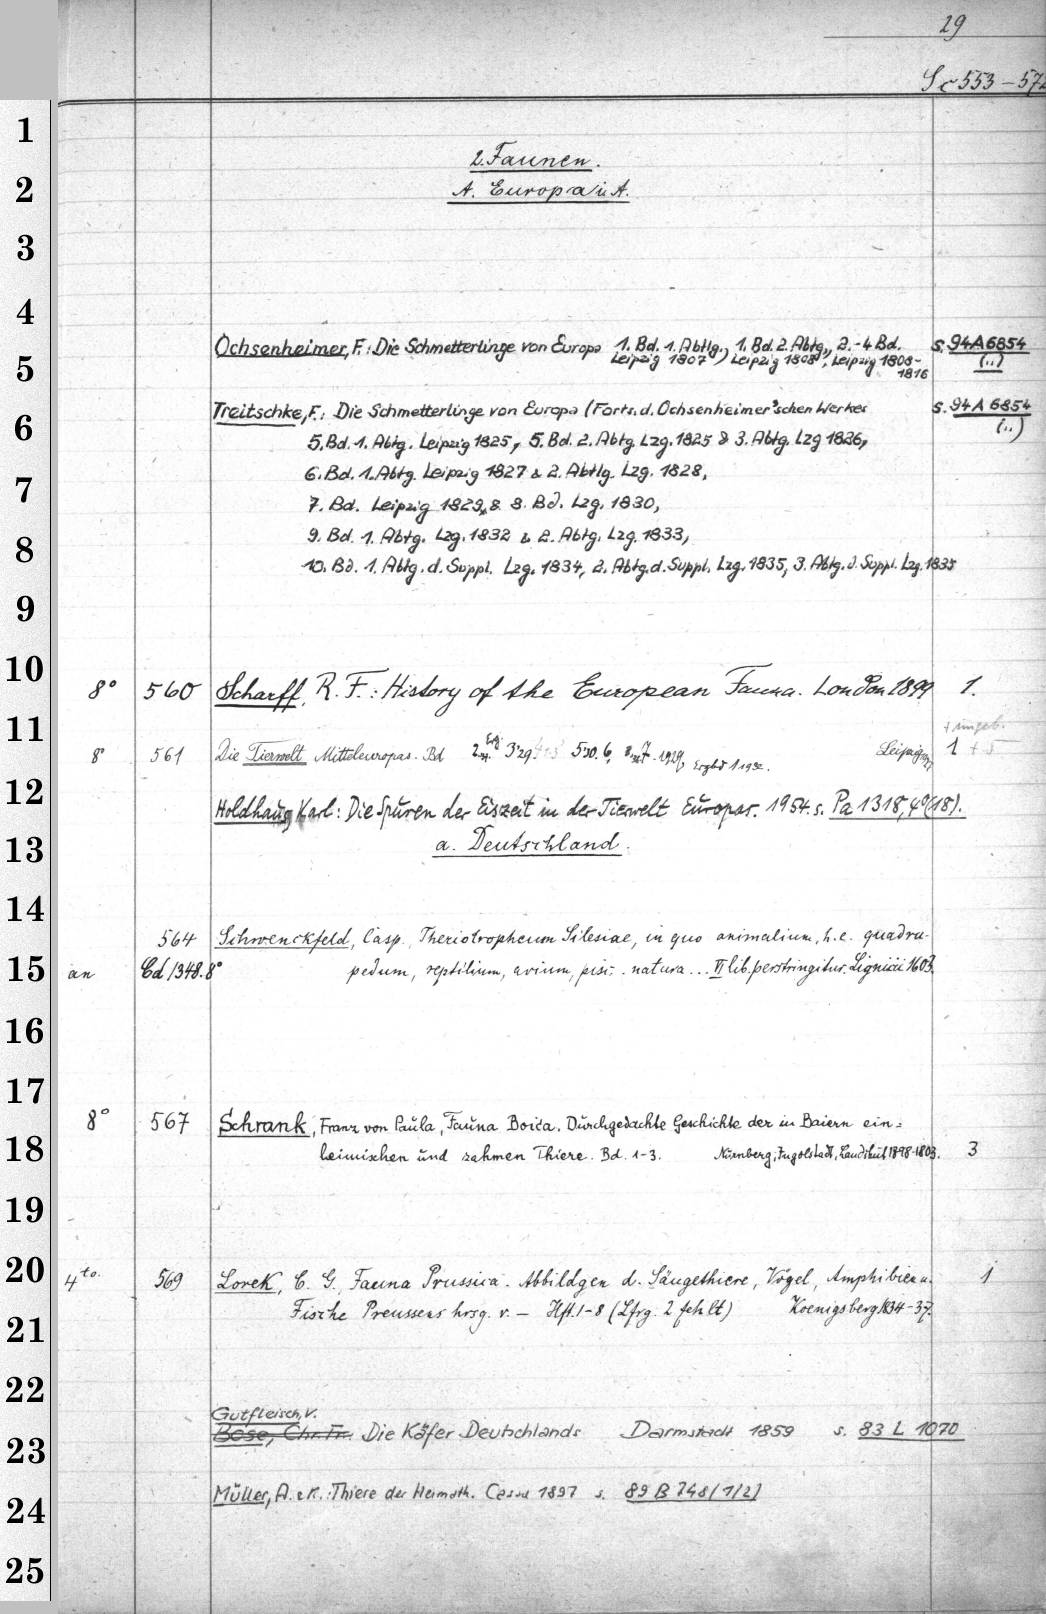 29
Sc 553 – 572
1
2. Faunen.
2
A. Europa ü. A.
3
4
Ochsenheimer, F.: Die Schmetterlinge von Europa 1. Bd. 1. Abtlg., 1. Bd. 2. Abtg., 2.-4 Bd. s. 94 A 6854
5
Leipzig 1807, Leipzig 1808, Leipzig 1808- (..)
1816
Treitschke, F.: Die Schmetterlinge von Europa (Forts. d. Ochsenheimer'schen Werkes s. 94 A 6854
6
(..)
5. Bd. 1. Abtg. Leipzig 1825, 5. Bd. 2. Abtg. Lzg. 1825 & 3. Abtg. Lzg 1826,
6. Bd. 1. Abtg. Leipzig 1827 & 2. Abtlg. Lzg. 1828,
7
7. Bd. Leipzig 1829, & 8. Bd. Lzg. 1830,
8
9. Bd. 1. Abtg. Lzg. 1832 & 2. Abtg. Lzg. 1833,
10. Bd. 1. Abtg. d. Suppl. Lzg. 1834, 2. Abtg. d. Suppl. Lzg. 1835, 3. Abtg. d. Suppl. Lzg. 1835
9
10
8° 560 Scharff, R. F.: History of the European Fauna. London 1899 1.
11
+ ungeb.
8° 561 Die Tierwelt Mitteleuropas. Bd 2. Erg. 3'29. 5'30. 6, 1929, Ergbd 1 1932. Leipzig 1 + 5
12
Holdhaus, Karl: Die Spuren der Eiszeit in der Tierwelt Europas. 1954. s. Pa 1318, 49(18).
13
a. Deutschland.
14
564 Schwenckfeld, Casp. Theriotropheum Silesiae, in quo animalium, h. e. quadru-
15
an Cd 1348. 8° pedum, reptilium, avium, pisc.. natura... VI lib. perstringitur. Lignicii 1603.
16
17
8° 567 Schrank, Franz von Paula, Fauna Boica. Durchgedachte Geschichte der in Baiern ein=
18
heimischen und zahmen Thiere. Bd. 1-3. Nürnberg, Ingolstadt, Landshut 1898-1803. 3
19
20
4to. 569 Lorek, C. G., Fauna Prussica. Abbildgen d. Säugethiere, Vögel, Amphibien u. 1
21
Fische Preussens hrsg. v. – Hft. 1-8 (Lfrg. 2 fehlt) Koenigsberg 1834-37.
22
Gutfleisch, V.
23
Bose, Chr. Fr. Die Käfer Deutschlands Darmstadt 1859 s. 83 L 1070
24
Müller, A. u K.: Thiere der Heimath. Cassel 1897 s. 89 B 748 (1/2)
25